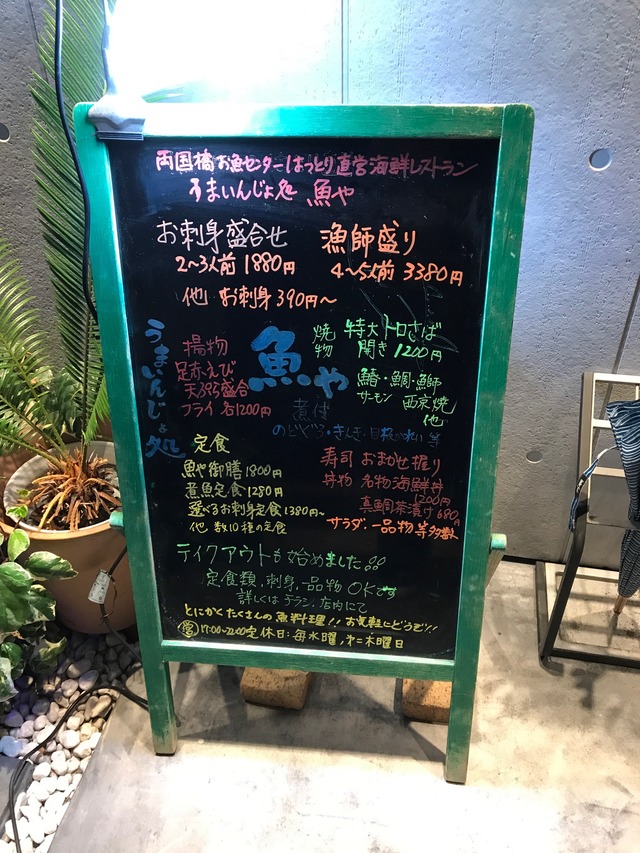 両国橋お魚センターはっとり直営海鮮レストラン
うまいんじょ処 魚や
お刺身盛合せ 漁師盛り
2〜3人前 1880円 4〜5人前 3380円
他 お刺身 390円〜
うまいんじょ処
魚や
揚物
足赤えび
天ぷら盛合
フライ 各1200円
焼物
特大トロさば
開き 1200円
鰆・鯛・鰤
サーモン 西京焼
他
煮付
のどぐろ・きんき・目板かれい 等
定食
魚や御膳 1800円
煮魚定食 1280円
選べるお刺身定食 1380円〜
他 数10種の定食
寿司 おまかせ握り
丼物 名物海鮮丼
1200円
真鯛茶漬け 680円
サラダ・一品物 等多数
テイクアウトも始めました!!
定食類,刺身,一品物 OKです
詳しくは チラシ,店内にて
とにかくたくさんの魚料理!! お気軽にどうぞ!!
営 17:00〜22:00 定休日:毎水曜,第二木曜日